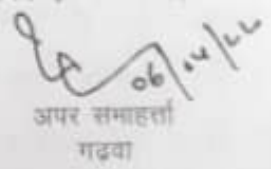 06/04/22
अपर समाहर्त्ता
गढवा